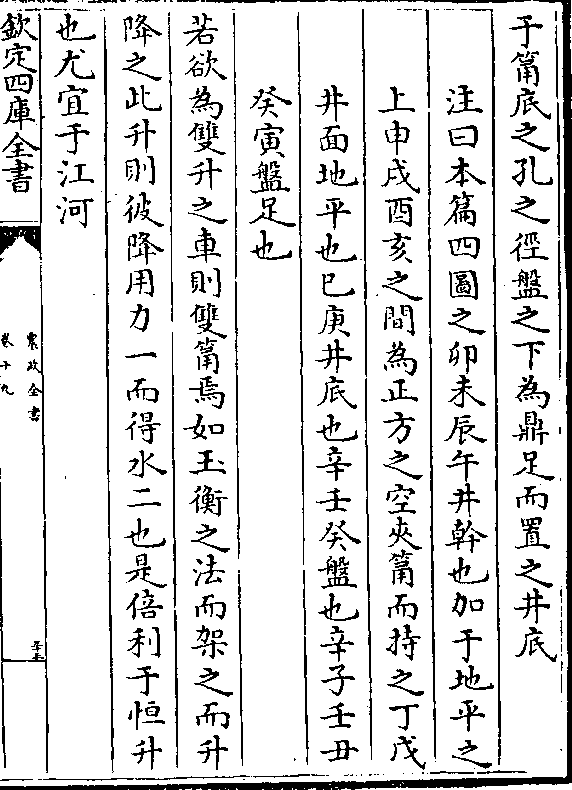 于筩底之孔之徑盤之下為鼎足而置之井底
注曰本篇四圖之卯未辰午井幹也加于地平之
上申戌酉亥之間為正方之空夾筩而持之丁戊
井面地平也已庚井底也辛壬癸盤也辛子壬丑
癸寅盤足也
若欲為雙升之車則雙筩焉如玉衡之法而架之而升
降之此升則彼降用力一而得水二也是倍利于恒升
也尤宜于江河
欽定四庫全書
農政全書
卷十九